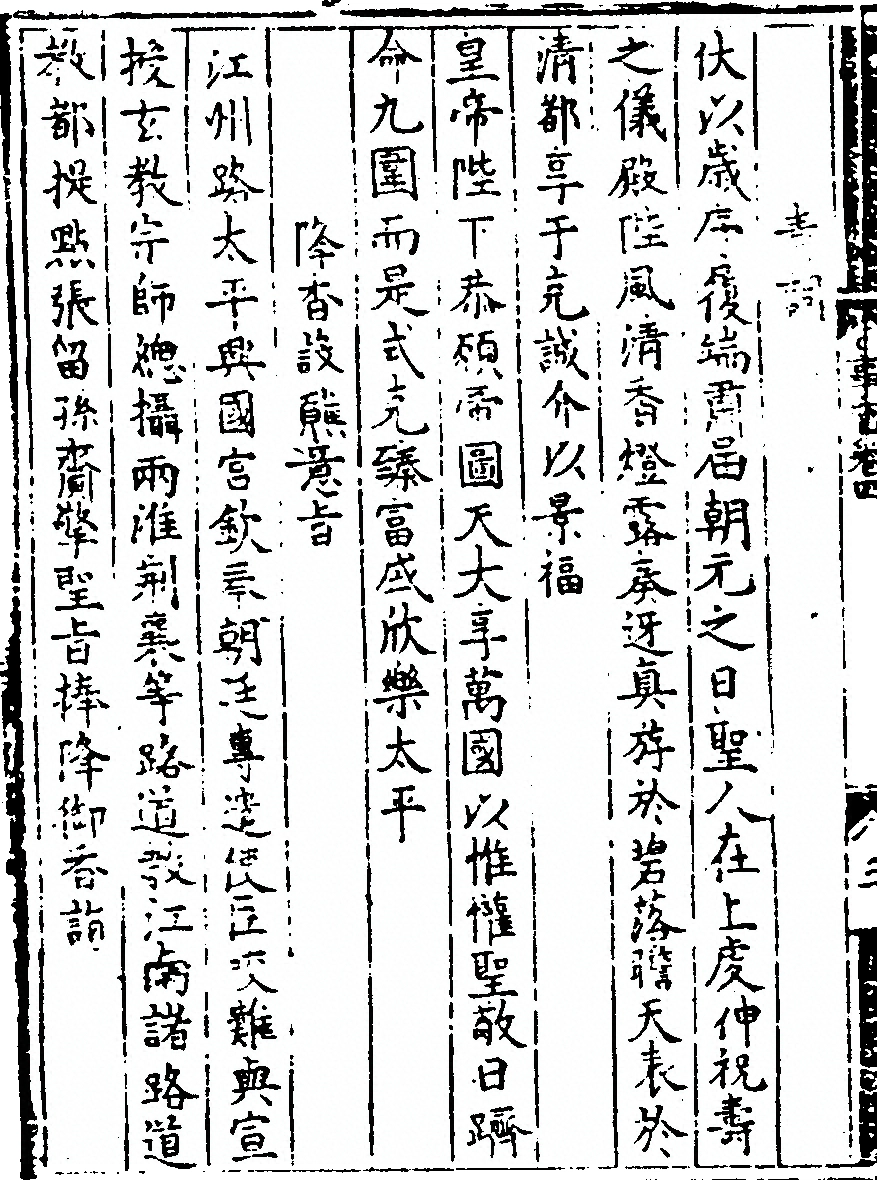 青詞
伏以歲序履端肅屆朝元之日聖人在上虔伸祝壽
之儀殿陛風清香燈露裛迓真游於碧落瞻天表於
清都享于克誠介以景福
皇帝陛下恭願帝圖天大享萬國以惟懽聖敬日躋
命九圍而是式克臻富盛欣樂太平
降香設醮意旨
江州路太平興國宮欽奉朝廷專遣使臣艾難與宣
授玄教宗師總攝兩淮荊襄等路道教江南諸路道
教都提點張留孫齎擎聖旨捧降御香詣
事實卷四